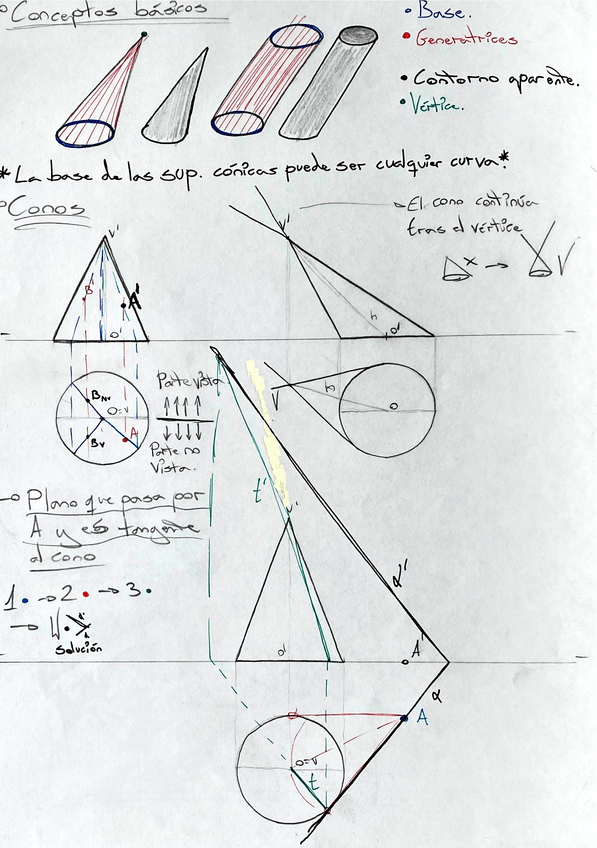 Conceptos básicos
• Base.
• Generatrices
• Contorno aparente.
• Vértice.
*La base de las sup. cónicas puede ser cualquier curva.*
Conos
El cono continúa
tras el vértice
V'
V'
B'
A'
O'
h
O'
B
O=V
B
A
Parte vista
Parte no
vista.
V
h
O
→ Plano que pasa por
A y es tangente
al cono
1 • → 2 • → 3 •
→
solución
t'
V'
α'
O'
A'
α
A
O=V
t